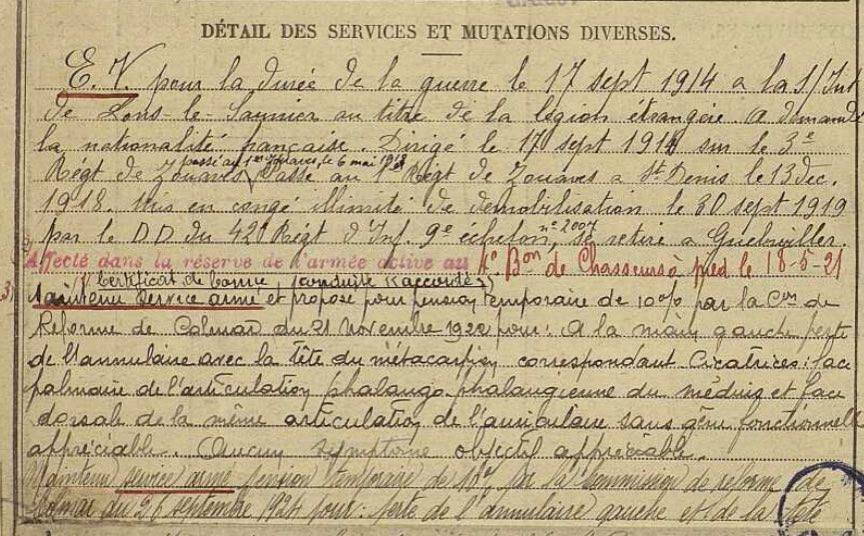 DÉTAIL DES SERVICES ET MUTATIONS DIVERSES.
E. V. pour la durée de la guerre le 17 sept 1914 a la S/Int
de Lons-le-Saunier au titre de la légion étrangère. A demandé
la nationalité française. Dirigé le 17 sept 1914 sur le 3e
passé au 1er Zouaves, le 6 mai 1918
Régt de Zouaves Passé au 1er Régt de Zouaves a St Denis le 13 dec.
1918. Mis en congé illimité de démobilisation le 30 sept 1919
par le D D du 42e Régt d'Inf. 9e échelon, n° 2007 se retire a Guebwiller.
Affecté dans la réserve de l'armée active au 4e Bon de Chasseurs à pied le 18-5-21
Certificat de bonne conduite "Accordé"
3) Maintenu service armé et proposé pour pension temporaire de 10% par la Con de
Réforme de Colmar du 21 Novembre 1922 pour: A la main gauche perte
de l'annulaire avec la tête du métacarpien correspondant. Cicatrices: face
palmaire de l'articulation phalango phalangienne du médius et face
dorsale de la même articulation de l'auriculaire sans gêne fonctionnelle
appréciable. Aucun symptome objectif appréciable.
Maintenu service armé pension temporaire de 10% par la Commission de réforme de
Colmar du 26 septembre 1924 pour: perte de l'annulaire gauche et de la tête